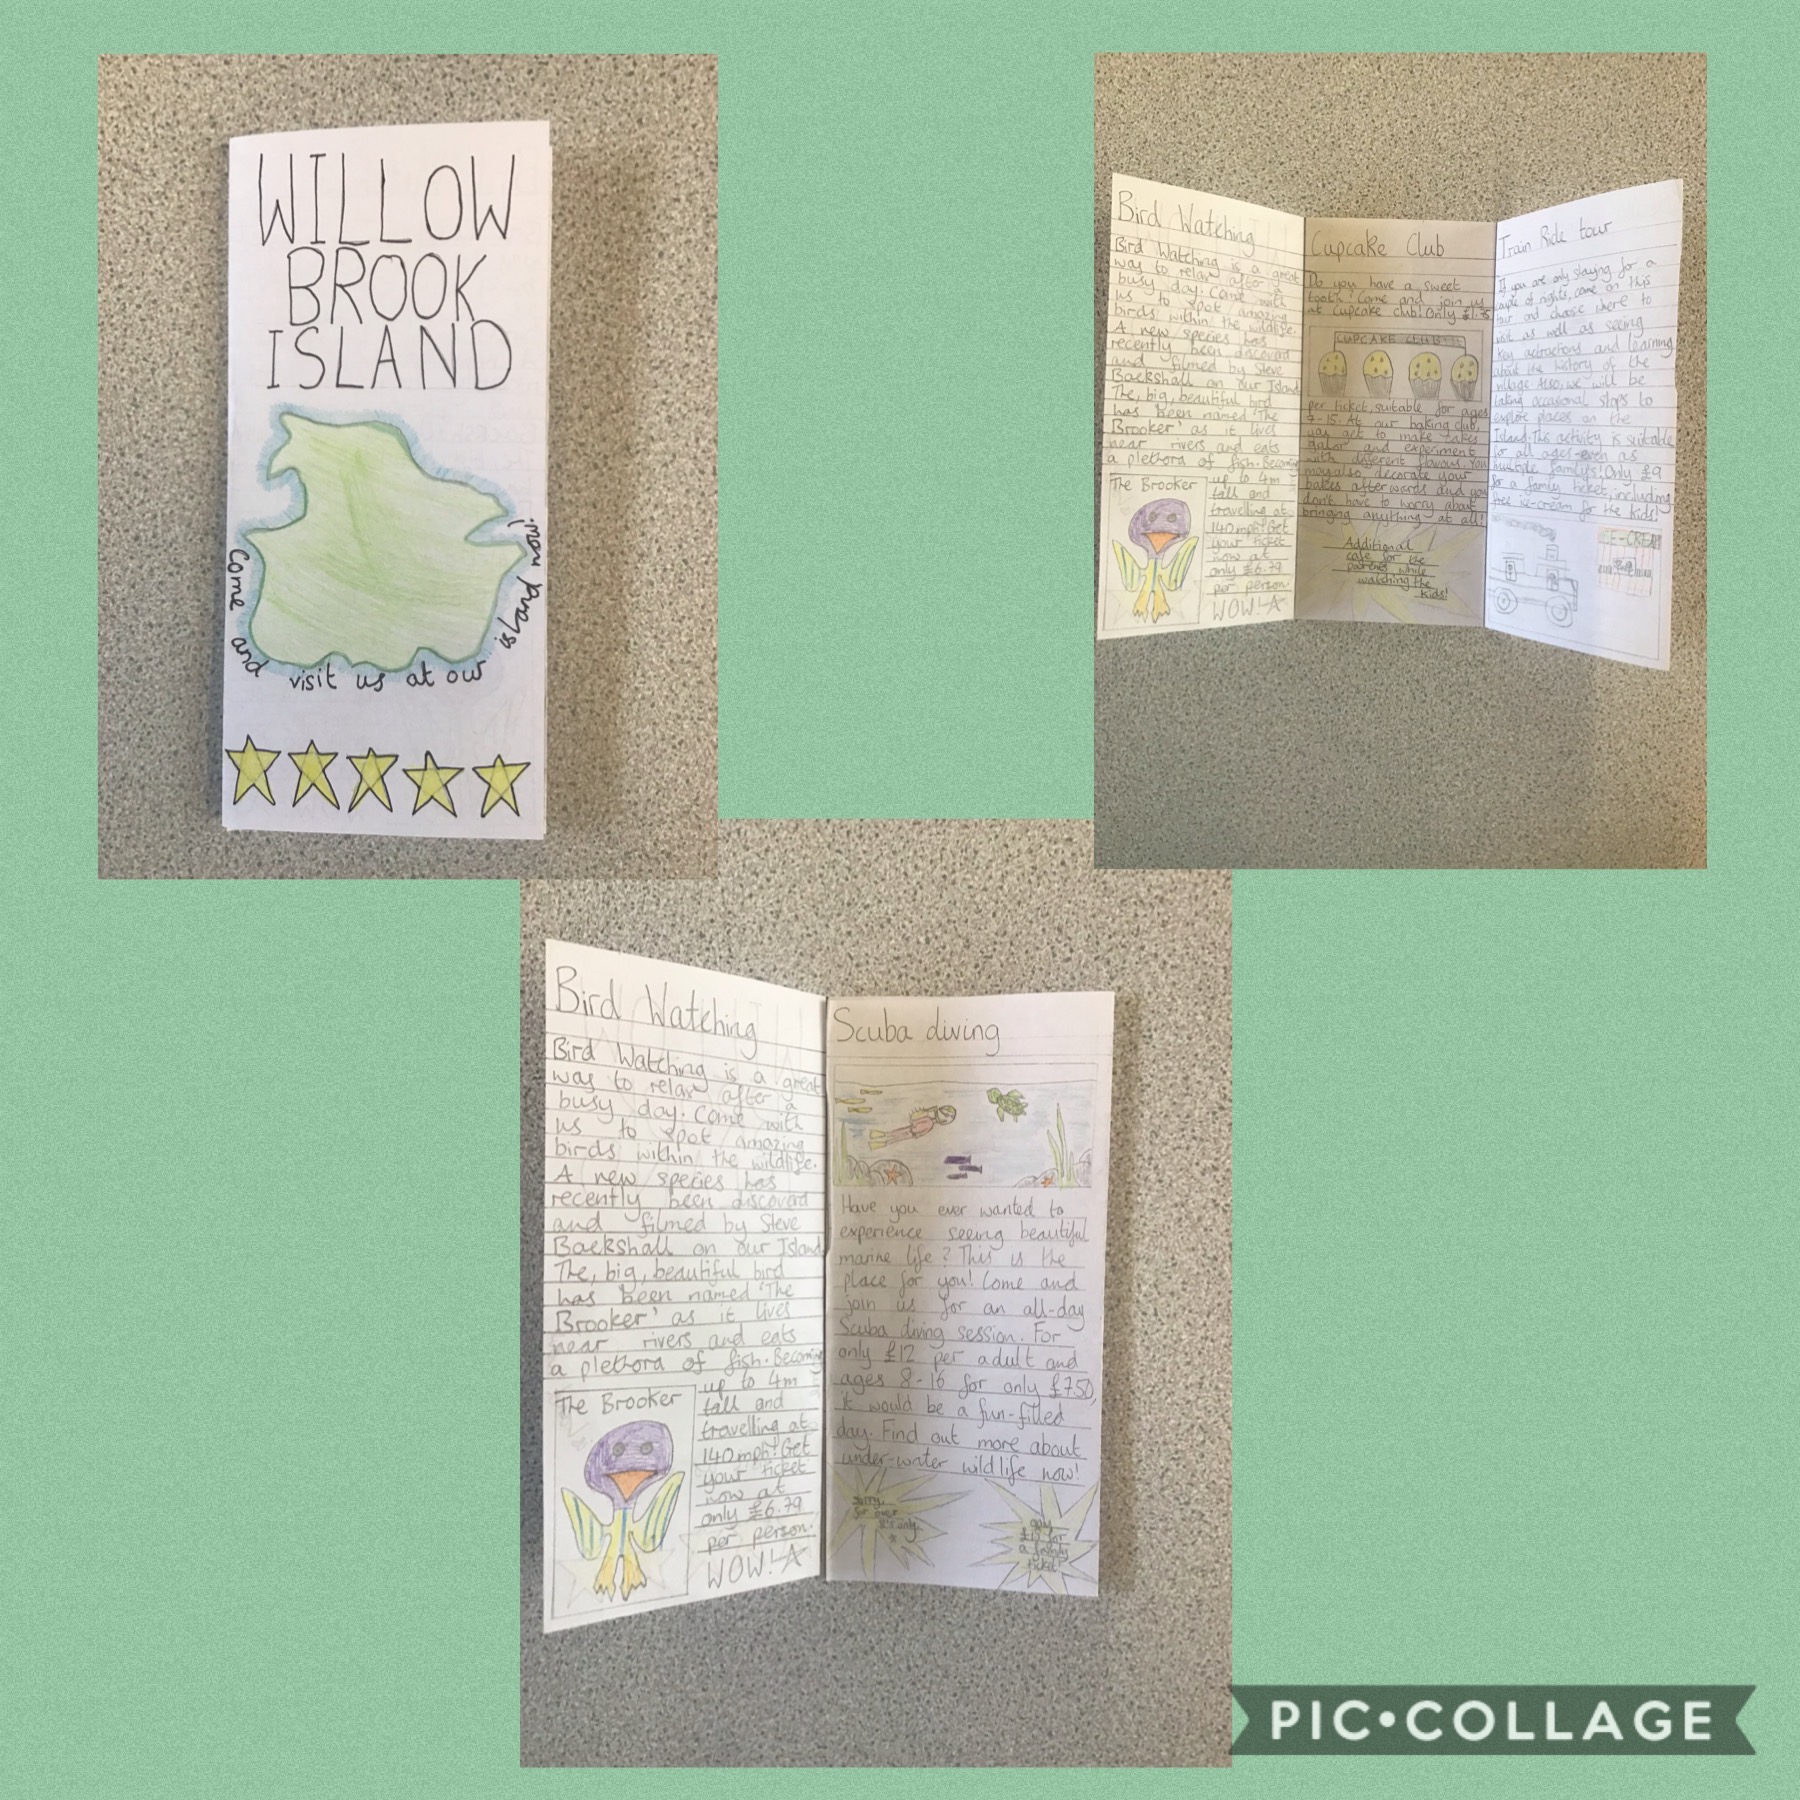 WILLOW
BROOK
ISLAND
Come and visit us at our island now!
Bird Watching
Bird Watching is a great
was to relax after a
busy day. Come with
us to spot amazing
birds within the wildlife.
A new species has
recently been discoverd
and filmed by Steve
Backshall on our Island
The, big, beautiful bird
has been named 'The
Brooker' as it lives
near rivers and eats
a plethora of fish. Becoming
up to 4m
tall and
travelling at
140mph! Get
your ticket
now at
only £6.79
per person.
WOW!
The Brooker
Cupcake Club
Do you have a sweet
tooth? Come and join us
at Cupcake club! Only
CUPCAKE CLUB
per ticket, suitable for ages
7-15. At our baking club,
you get to make cakes
galor and experiment
with different flavours. You
may also decorate your
bakes afterwards and you
don't have to worry about
bringing anything at all!
Additional
cafe for the
parents while
watching the
kids!
Train Ride tour
If you are only staying for a
couple of nights, come on this
tour and choose where to
visit as well as seeing
key attractions and learning
about the history of the
village. Also, we will be
taking occasional stops to
explore places on the
Island. This activity is suitable
for all ages-even as
multiple family's! Only £9
for a family ticket, including
free ice-cream for the kids!
ICE-CREAM
Bird Watching
Bird Watching is a great
was to relax after a
busy day. Come with
us to spot amazing
birds within the wildlife.
A new species has
recently been discoverd
and filmed by Steve
Backshall on our Island
The, big, beautiful bird
has been named 'The
Brooker' as it lives
near rivers and eats
a plethora of fish. Becoming
up to 4m
tall and
travelling at
140mph! Get
your ticket
now at
only £6.79
per person.
WOW!
The Brooker
Scuba diving
Have you ever wanted to
experience seeing beautiful
marine life? This is the
place for you! Come and
join us for an all-day
Scuba diving session. For
only £12 per adult and
ages 8-16 for only £7.50,
it would be a fun-filled
day. Find out more about
under-water wildlife now!
sorry,
for over
8's only
*
only
for
a family
ticket!
PIC•COLLAGE